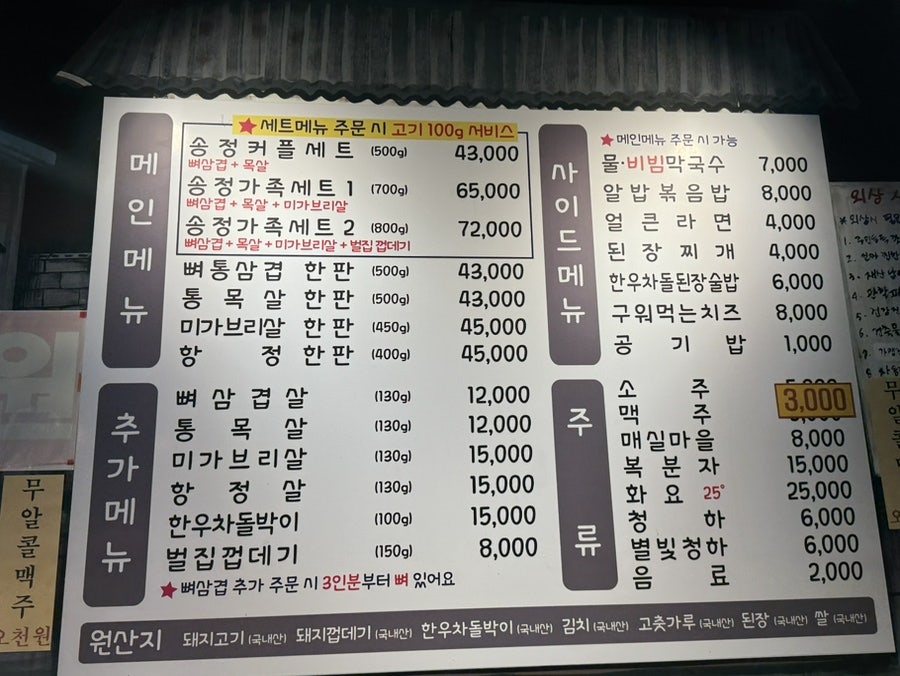 메인메뉴
★세트메뉴 주문 시 고기 100g 서비스
송정커플세트 (500g) 43,000
뼈삼겹 + 목살
송정가족세트 1 (700g) 65,000
뼈삼겹 + 목살 + 미가브리살
송정가족세트 2 (800g) 72,000
뼈삼겹 + 목살 + 미가브리살 + 벌집껍데기
뼈통삼겹 한판 (500g) 43,000
통목살 한판 (500g) 43,000
미가브리살 한판 (450g) 45,000
항정 한판 (400g) 45,000
추가메뉴
뼈삼겹살 (130g) 12,000
통목살 (130g) 12,000
미가브리살 (130g) 15,000
항정살 (130g) 15,000
한우차돌박이 (100g) 15,000
벌집껍데기 (150g) 8,000
★뼈삼겹 추가 주문 시 3인분부터 뼈 있어요
사이드메뉴
★메인메뉴 주문 시 가능
물·비빔막국수 7,000
알밥볶음밥 8,000
얼큰라면 4,000
된장찌개 4,000
한우차돌된장술밥 6,000
구워먹는치즈 8,000
공기밥 1,000
주류
소주
맥주
3,000
매실마을 8,000
복분자 15,000
화요 25° 25,000
청하 6,000
별빛청하 6,000
음료 2,000
원산지 돼지고기 (국내산) 돼지껍데기 (국내산) 한우차돌박이 (국내산) 김치 (국내산) 고춧가루 (국내산) 된장 (국내산) 쌀 (국내산)
무알콜맥주
오천원
외상